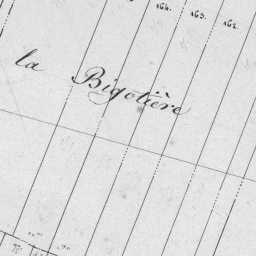 164. 163. 162.
la Bigotière